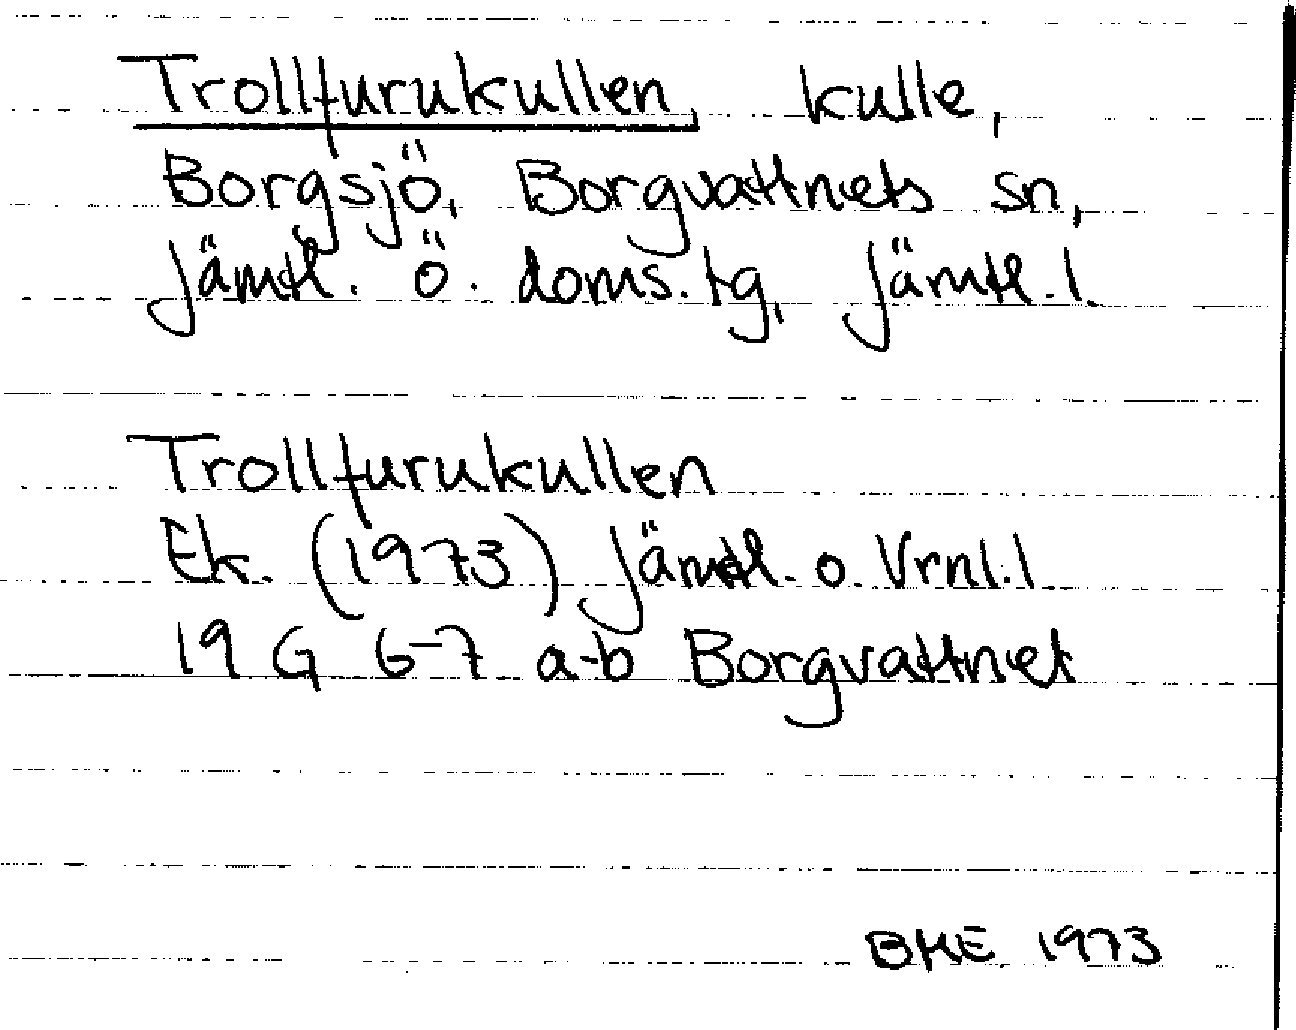 Trollfurukullen, kulle,
Borgsjö, Borgvattnets sn,
Jämtl. Ö. doms. tg, Jämtl. l.
Trollfurukullen
Ek. (1973) Jämtl. o. Vrnl. l
19 G 6-7 a-b Borgvattnet
BME 1973